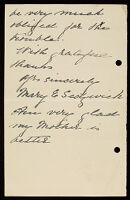 be very much
obliged for this
trouble.
With grateful
thanks
Yrs sincerely
Mary E. Sedgwick
Am very glad
my Mother is
better